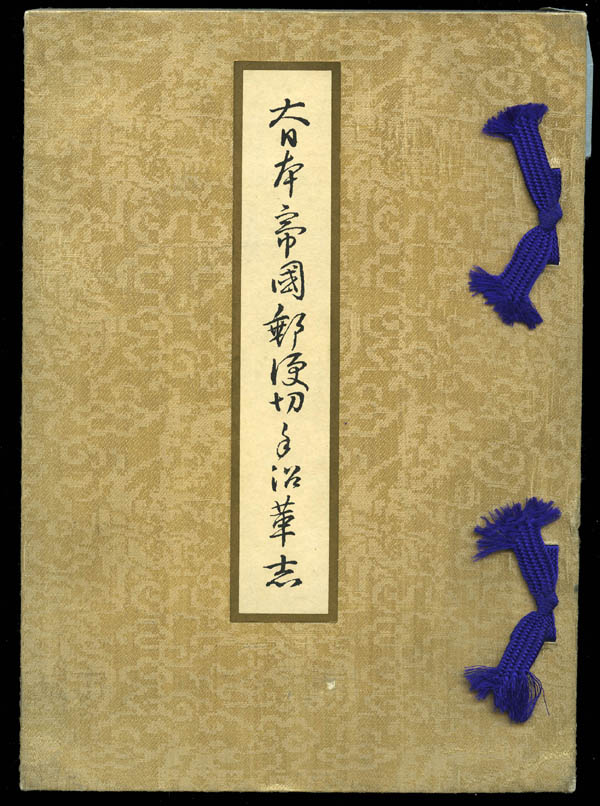 大日本帝國郵便切手沿革志